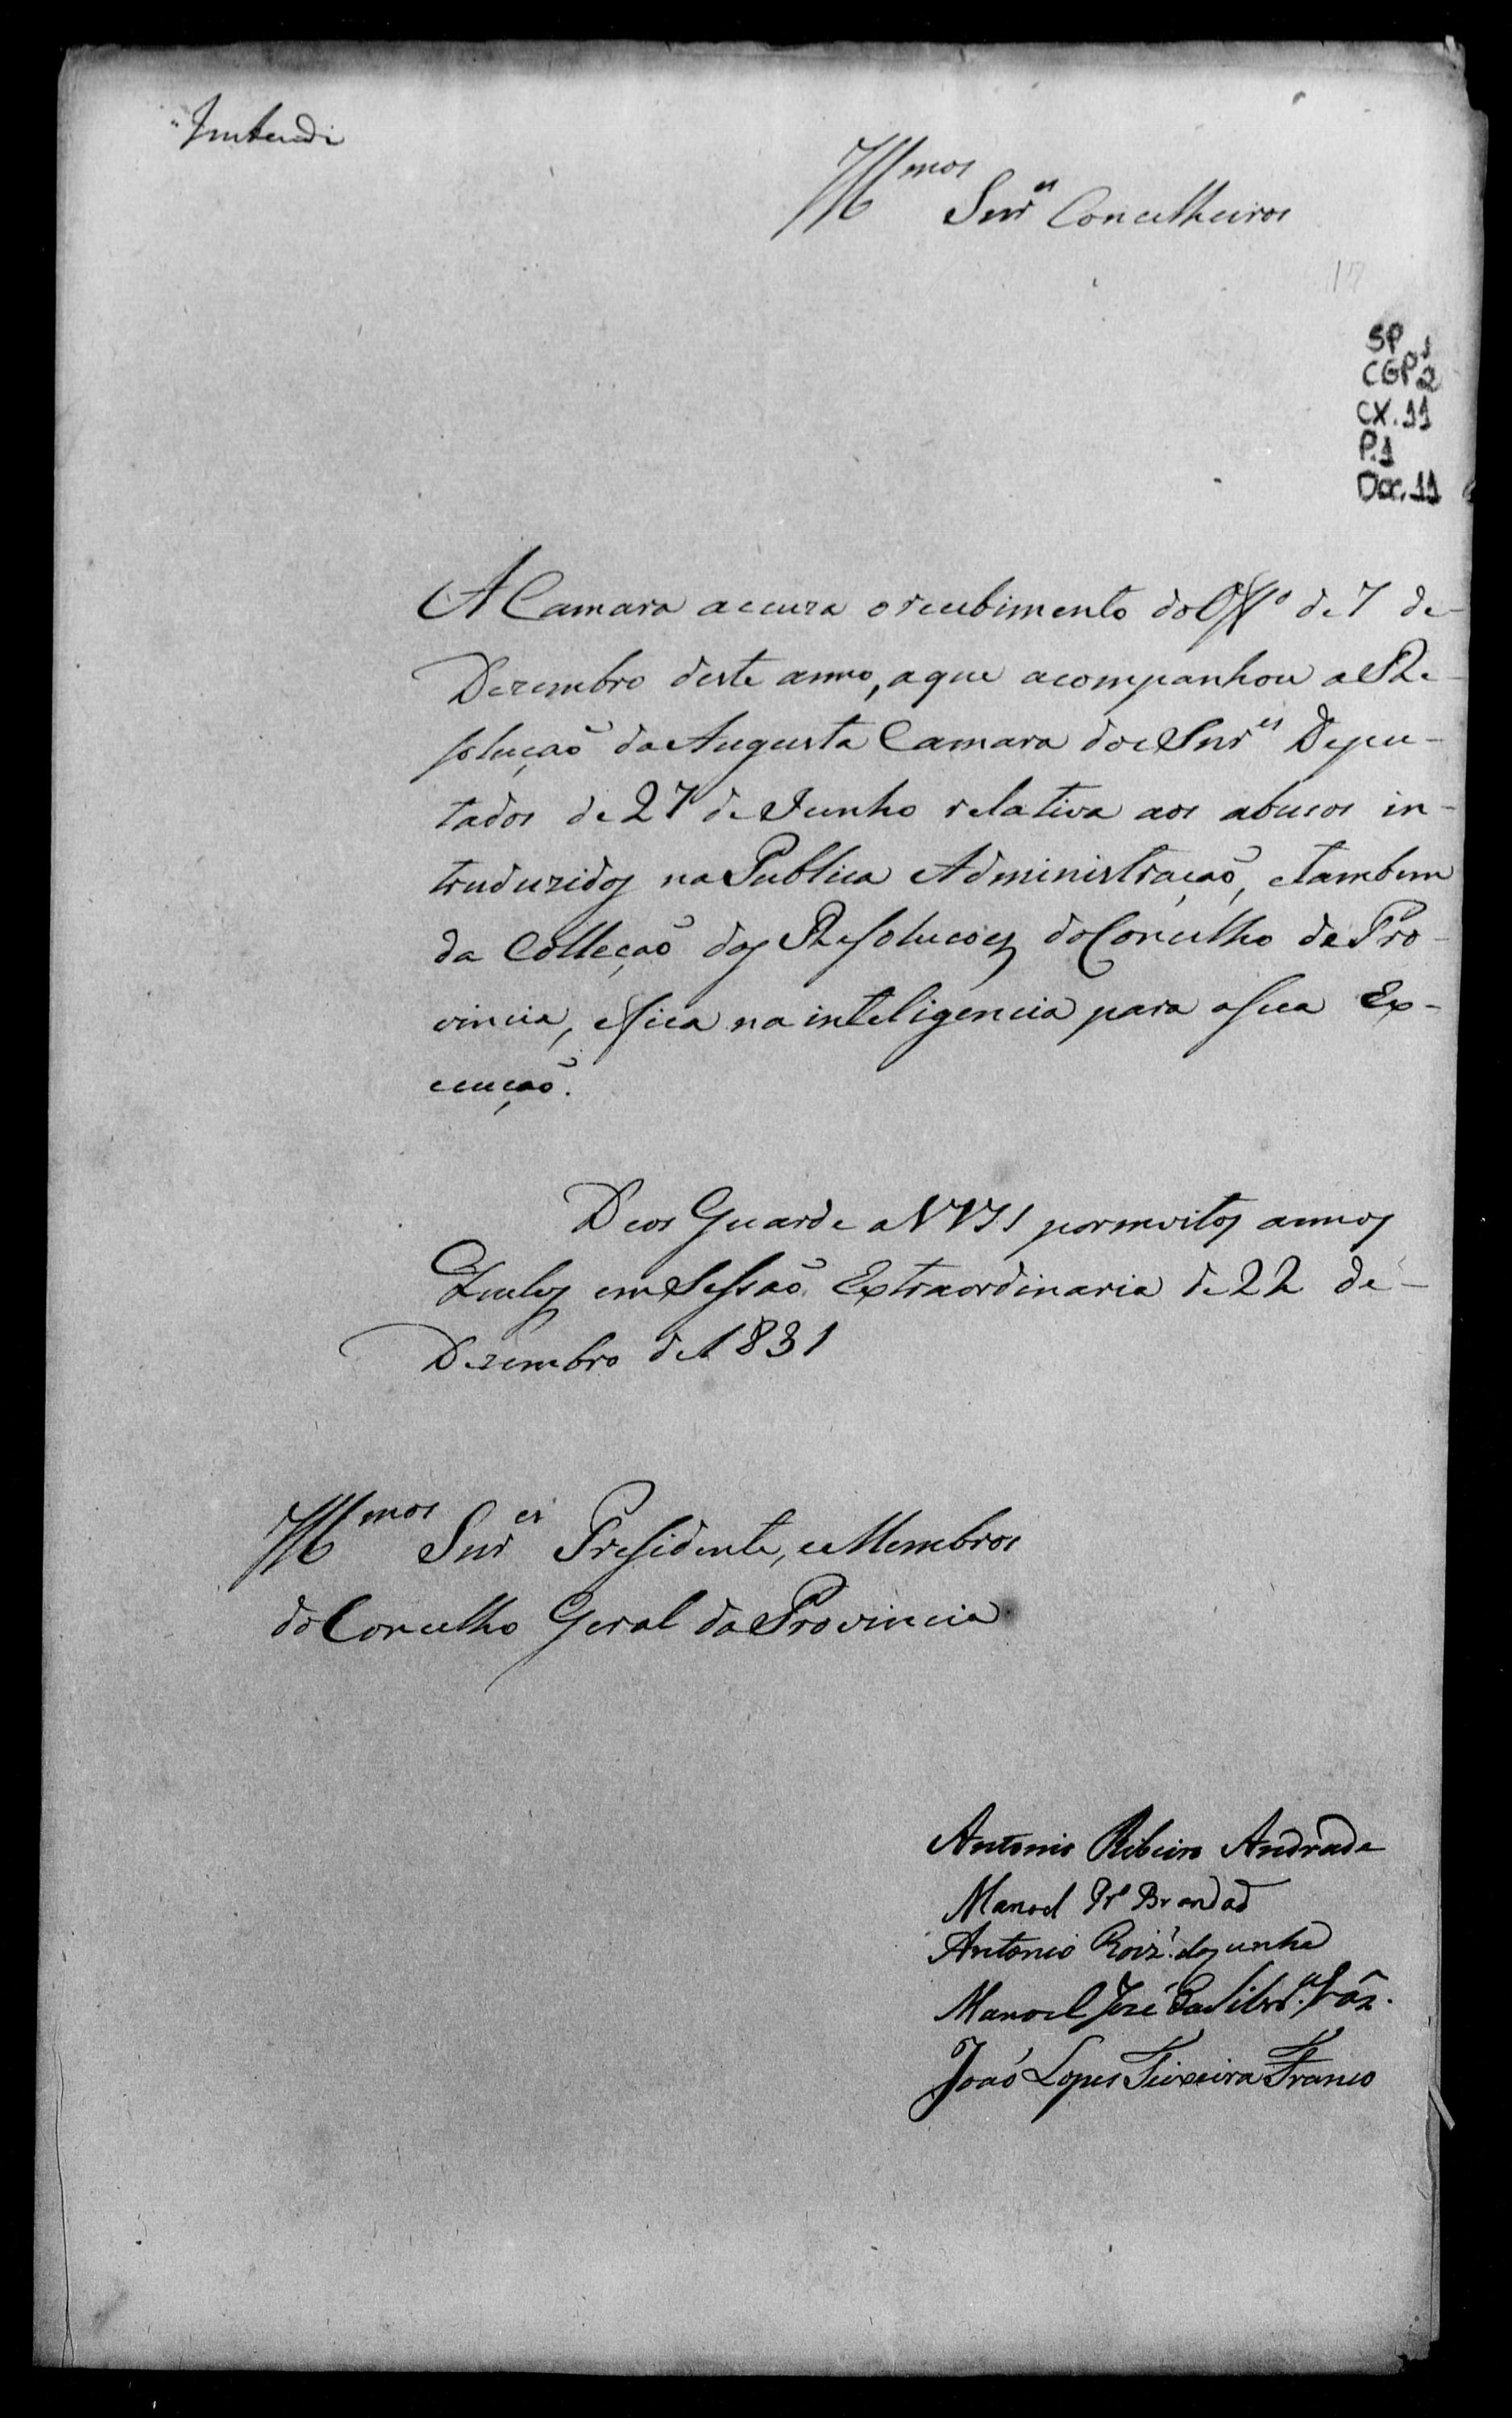 Illmos Snres Concelheiros
17
SP
CGP1
2
CX. 11
P.1
Doc. 11
A Camara accuza o recebimento do Offo de 7 de
Dezembro deste anno, a que acompanhou a Re-
soluçaõ da Augusta Camara dos Snres Depu-
tados de 27 de Junho relativa aos abusos in-
truduzidos na Publica Administraçaõ, e tambem
da Colleçaõ das Resolucoẽs do Concelho da Pro-
vincia, e fica na inteligencia para a sua Ex-
ecuçaõ.
Deos Guarde a VVSS por muitos annos
em Sessaõ Extraordinaria de 22 de
Dezembro de 1831
Illmos Snres Presidente, e Membros
do Concelho Geral da Provincia
Antonio Ribeiro Andrade
Manoel Pra Brandaõ
Antonio Roiz' da Cunha
Manoel José da Silvra
João Lopes Teixeira Franco